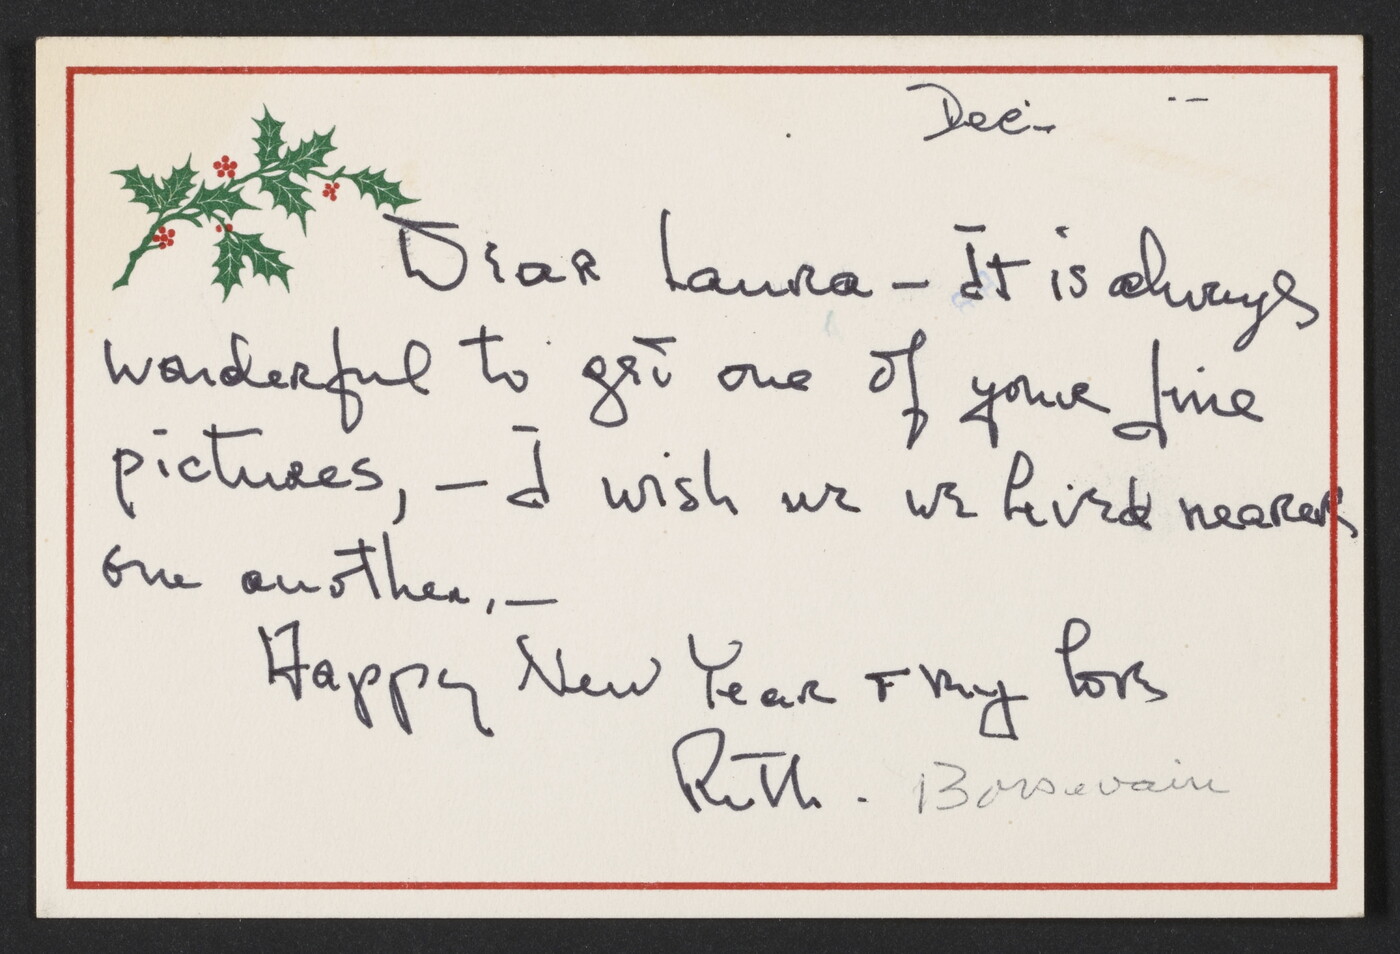 Dec.
Dear Laura — It is always
wonderful to get one of your fine
pictures, — I wish we we lived nearer
one another, —
Happy New Year + my love
Ruth. Boissevain